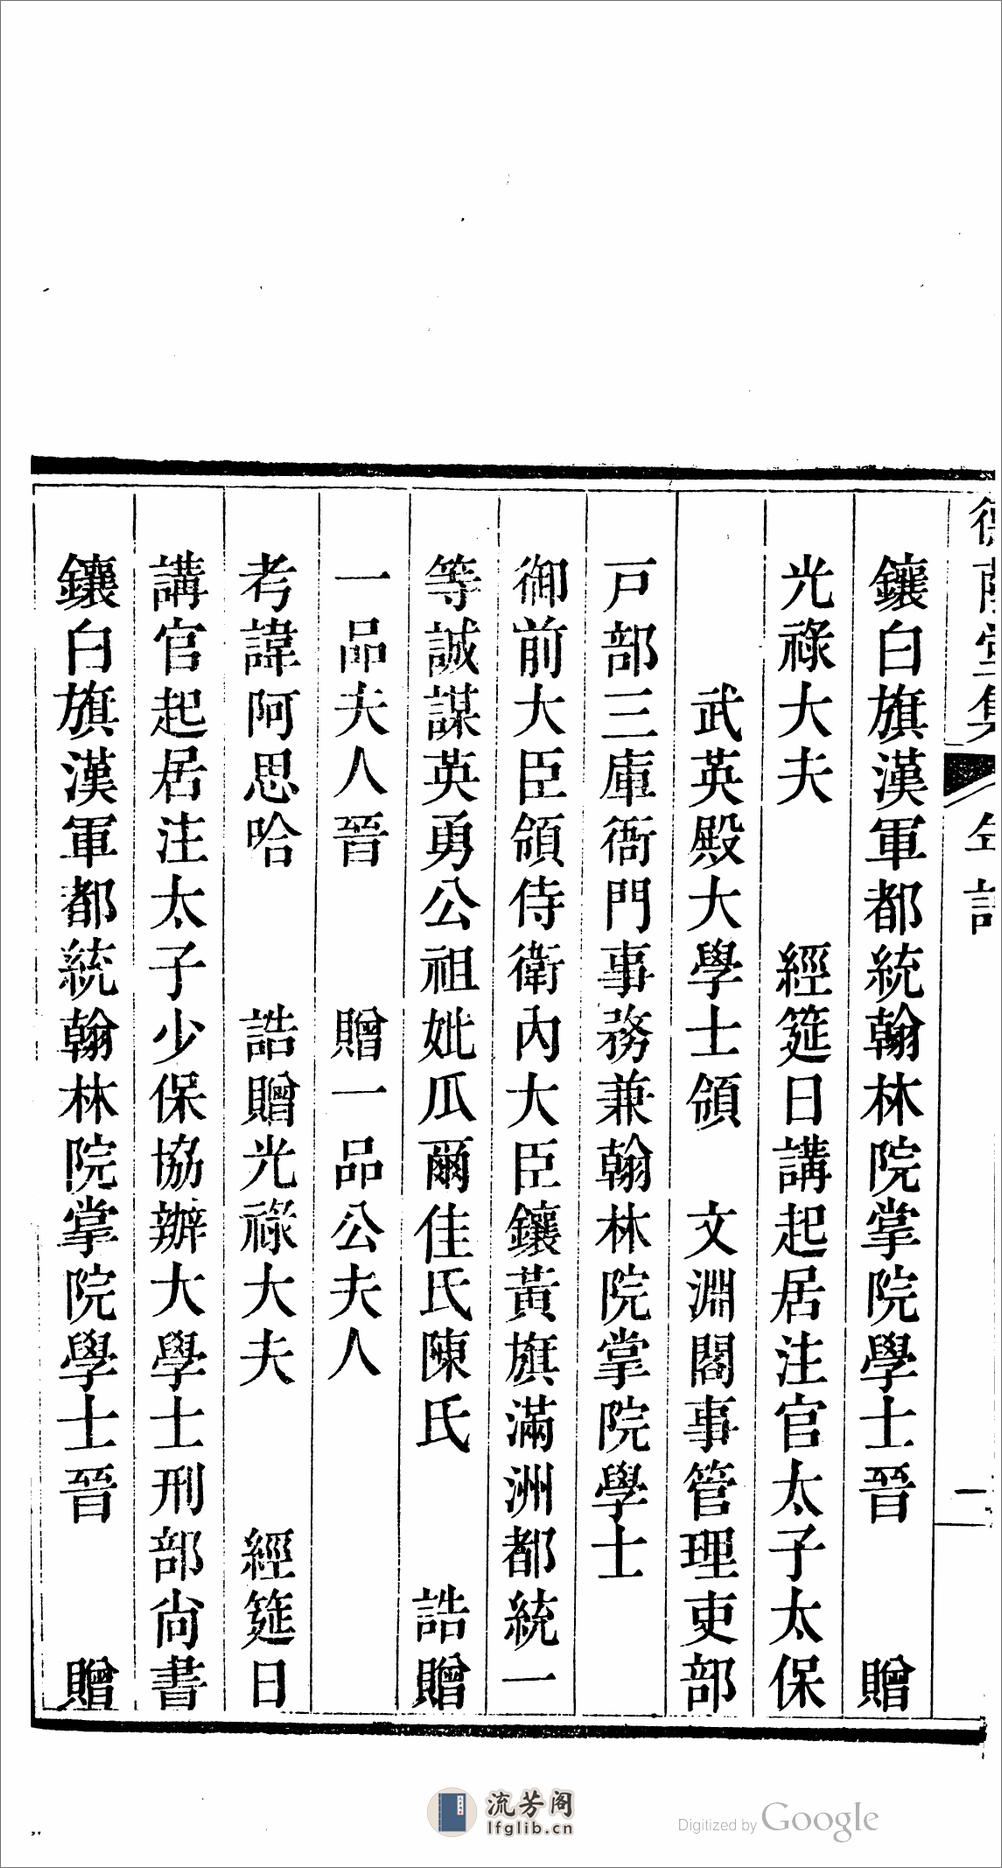 鑲白旗漢軍都統翰林院掌院學士晉 贈
光祿大夫 經筵日講起居注官太子太保
武英殿大學士領 文淵閣事管理吏部
戸部三庫衙門事務兼翰林院掌院學士
御前大臣領侍衛內大臣鑲黃旗滿洲都統一
等誠謀英勇公祖妣瓜爾佳氏陳氏 誥贈
一品夫人晉 贈一品公夫人
考諱阿思哈 誥贈光祿大夫 經筵日
講官起居注太子少保協辦大學士刑部尙書
鑲白旗漢軍都統翰林院掌院學士晉 贈
流芳阁
lfglib.cn
Digitized by Google